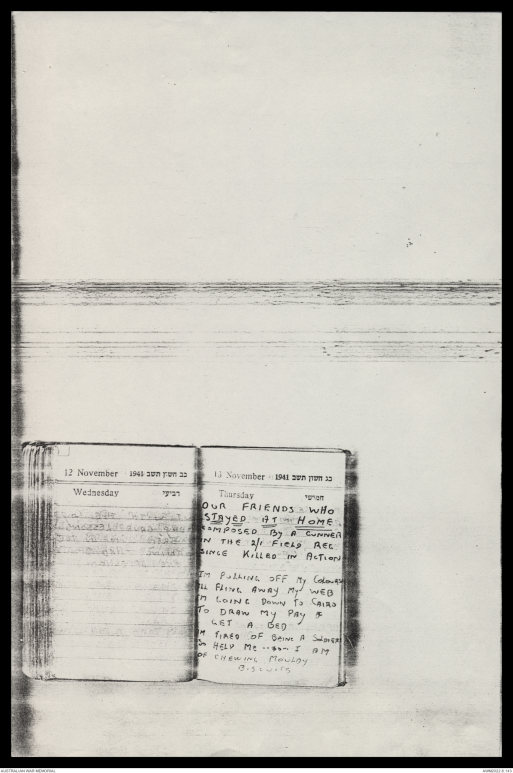 12 November · 1941 כב חשון תשב
Wednesday רביעי
13 November · 1941 כג חשון תשב
Thursday חמישי
OUR FRIENDS WHO
STAYED AT HOME
COMPOSED BY A GUNNER
IN THE 2/1 FIELD REG
SINCE KILLED IN ACTION
I'M PULLING OFF MY COLOURS
I'LL FLING AWAY MY WEB
I'M GOING DOWN TO CAIRO
TO DRAW MY PAY &
GET A BED
I'M TIRED OF BEING A SOLDIER
SO HELP ME I AM
OF CHEWING MOULDY
BISCUITS
AUSTRALIAN WAR MEMORIAL